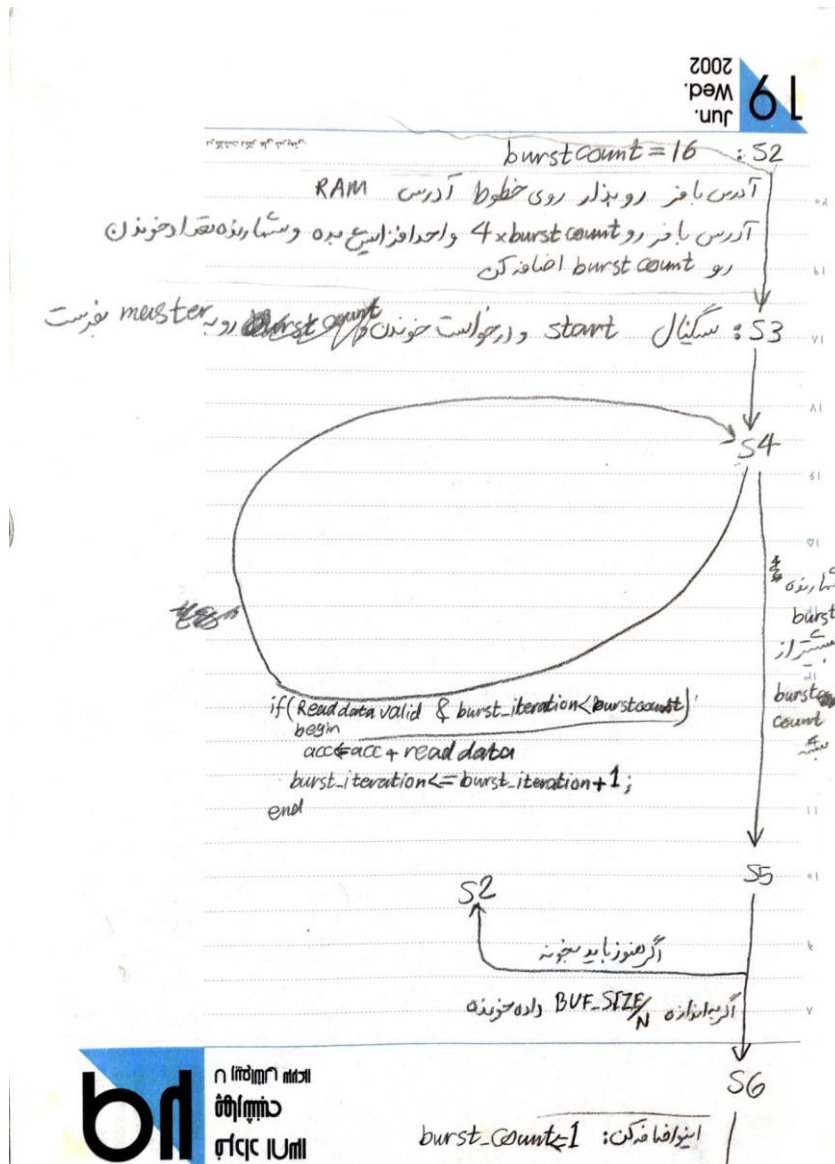 19
Jun.
Wed.
2002
S2: burst count = 16
آدرس بافر رو بذار روی خطوط آدرس RAM
آدرس بافر رو 4 x burst count واحد افزایش بده و شمارنده تعداد خوندن
رو burst count اضافه کن
S3: سگینال start و درخواست خوندن رو به master بفرست
S4
شمارنده
burst
بیشتر از
burst
count
بشه
if (Readdata valid & burst_iteration<burstcount)
begin
acc<=acc + read data
burst_iteration<=burst_iteration+1;
end
S5
S2
اگر هنوز باید بخونه
اگر به اندازه BUF_SIZE/N داده خونده
S6
اینو اضافه کن: burst_count<=1